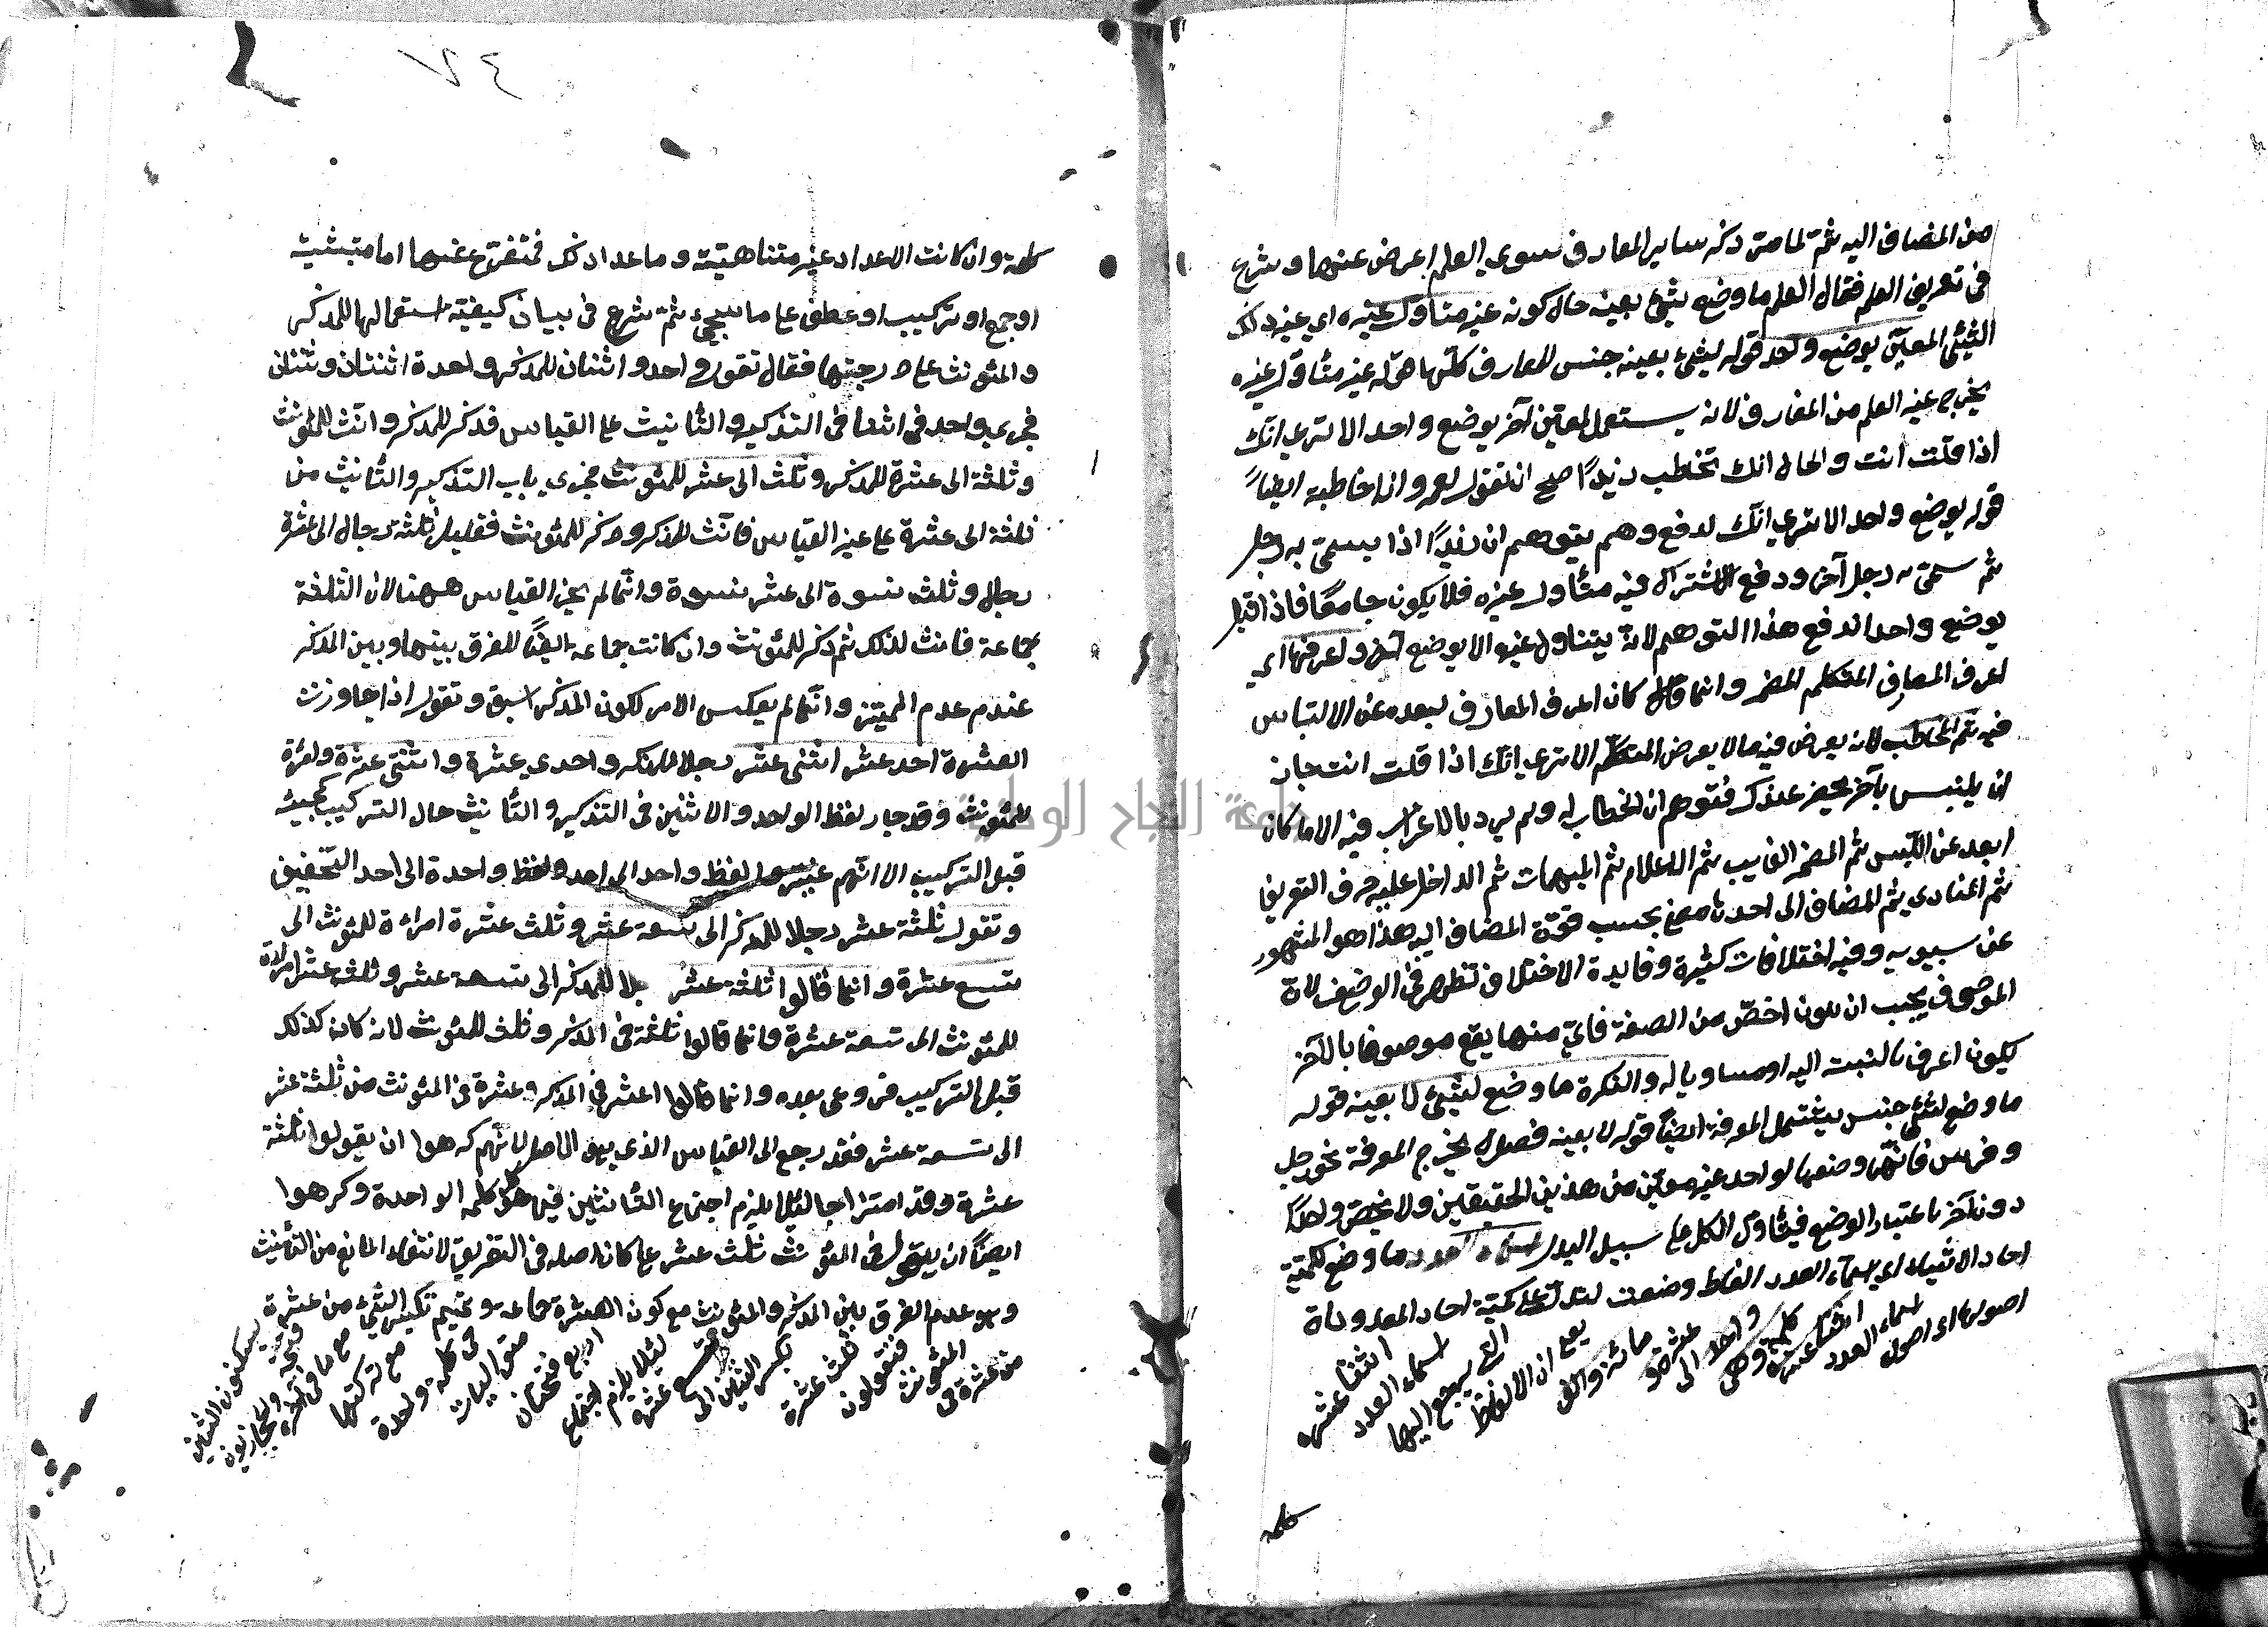 من المضاف اليه ثم لما مر ذكر ساير المعارف سوى العلم اعرض عنها وشرع
في تعريف العلم فقال العلم ما وضع لشئ بعينه حال كونه غير متناول غيره اي غير ذلك
الشئ المعين بوضع واحد قوله لشئ بعينه جنس للمعارف كلها قوله غير متناول غيره
يخرج غير العلم من المعارف لانه يستعمل لمعين آخر بوضع واحد الا ترى انك
اذا قلت انت والحال انك تخاطب زيدًا صح ان تقول لعمرو اذا خاطبته ايضًا
قوله بوضع واحد الا ترى انك لدفع وهم يتوهم ان زيدًا اذا يسمى به رجل
ثم سمى به رجل آخر ودفع الاشتراك فيه متناول غيره فلا يكون جامعًا فاذا قيل
بوضع واحد اندفع هذا التوهم لانه يتناول غيره الا بوضع آخر واعرفها اي
اعرف المعارف المتكلم المضمر وانما كان اعرف المعارف لبعده عن الالتباس
فيه ثم المخاطب لانه يعرض فيه ما لا يعرض المتكلم الا ترى انك اذا قلت انت جاز
ان يلتبس بآخر بحضر عندك فتوهم ان الخطاب له ولم يرد بالاعراب فيه الا ما كان
ابعد عن اللبس ثم المضمر الغايب ثم الاعلام ثم المبهمات ثم الداخل عليه حرف التعريف
ثم المنادى ثم المضاف الى احدها معنى بحسب قوة المضاف اليه هذا هو المشهور
عن سيبويه وفيه اختلافات كثيرة وفايدة الاختلاف تظهر في الوضيف لان
الموصوف يجب ان يكون اخص من الصفة فاي منها يقع موصوفا بالآخر
يكون اعرف بالنسبة اليه او مساويا له والنكرة ما وضع لشئ لا بعينه قوله
ما وضع لشئ جنس يشتمل المعرفة ايضًا قوله لا بعينه فصل يخرج المعرفة نحو رجل
وفرس فانهما وضعها لواحد غير معين من هذين الحقيقتين ولا يختص واحدًا
دون آخر باعتبار الوضع فيتناول الكل على سبيل البدل اسماء العدد ما وضع لكمية
احاد الاشياء اي اسماء العدد الفاظ وضعت لتدل على كمية احاد المعدودات
اصولها اي اصول
اسماء العدد
اثنتا عشرة
كلمة وهي
واحد الى
عشرة و
مائة والف
يعني ان الالفاظ
التي يرجع اليها
اسماء العدد
اثنتا عشرة
كلمة
٧٤
كلمة وان كانت الاعداد غير متناهية وما عدا ذلك فمتفرع عنها اما بتثنية
او جمع او تركيب او عطف على ما سيجيء ثم شرع في بيان كيفية استعمالها للمذكر
والمؤنث على درجتها فقال تقول واحد واثنان للمذكر واحدة اثنتان وثنتان
فجرى واحد في اثنا في التذكير والتانيث على القياس فذكر للمذكر وانث للمؤنث
وثلثة الى عشرة للمذكر وثلث الى عشر للمؤنث مجرى باب التذكير والتانيث من
ثلثة الى عشرة على غير القياس فانث للمذكر وذكر للمؤنث فقيل ثلثة رجال الى عشرة
رجال وثلث نسوة الى عشر نسوة وانما لم يجز القياس ههنا لان الثلثة
جماعة فانث لذلك ثم ذكر للمؤنث وان كانت جماعة ايضًا للفرق بينها وبين المذكر
عندم عدم المميز وانما لم يعكس الامر لكون المذكر اسبق وتقول اذا جاوزت
العشرة احد عشر اثنى عشر رجلا للمذكر واحدى عشرة واثنتى عشرة امراة
للمؤنث وقد جار لفظ الواحد والاثنين في التذكير والتانيث حال التركيب كمجيئه
قبل التركيب الا انهم غيروا لفظ واحد الى احد ولفظ واحدة الى احد التخفيف
وتقول ثلثة عشر رجلا للمذكر الى تسعة عشر وثلث عشرة امراة للمؤنث الى
تسع عشرة وانما قالوا ثلثة عشر رجلا للمذكر الى تسعة عشر وثلث عشرة امراة
للمؤنث الى تسعة عشرة وانما قالوا ثلثة في المذكر وثلث للمؤنث لانه كان كذلك
قبل التركيب فروعى بعده وانما قالوا عشر في المذكر وعشرة في المؤنث من ثلثة عشر
الى تسعة عشر فقد رجع الى القياس الذي هو الاصل لانهم كرهوا ان يقولوا ثلثة
عشرة وقد امتزاجا لئلا يلزم اجتماع التانيثين فيما هو كلمه الواحدة وكرهوا
ايضًا ان يقول في المؤنث ثلث عشر على كان اصله في التفريق لانتفاء المانع من التانيث
وهو عدم الفرق بين المذكر والمؤنث مع كون العشرة جماعة وتميم تكسر الشين من عشرة
من عشرة في
المؤنث
فتقولون
ثلث عشرة
بكسر الشين الى
تسع عشرة
لئلا يلزم اجتماع
اربع فتحات
متواليات
في كلمة واحدة
مع تركبها
مع ما في آخره
فتحة والحجازيون
يسكنون الشين